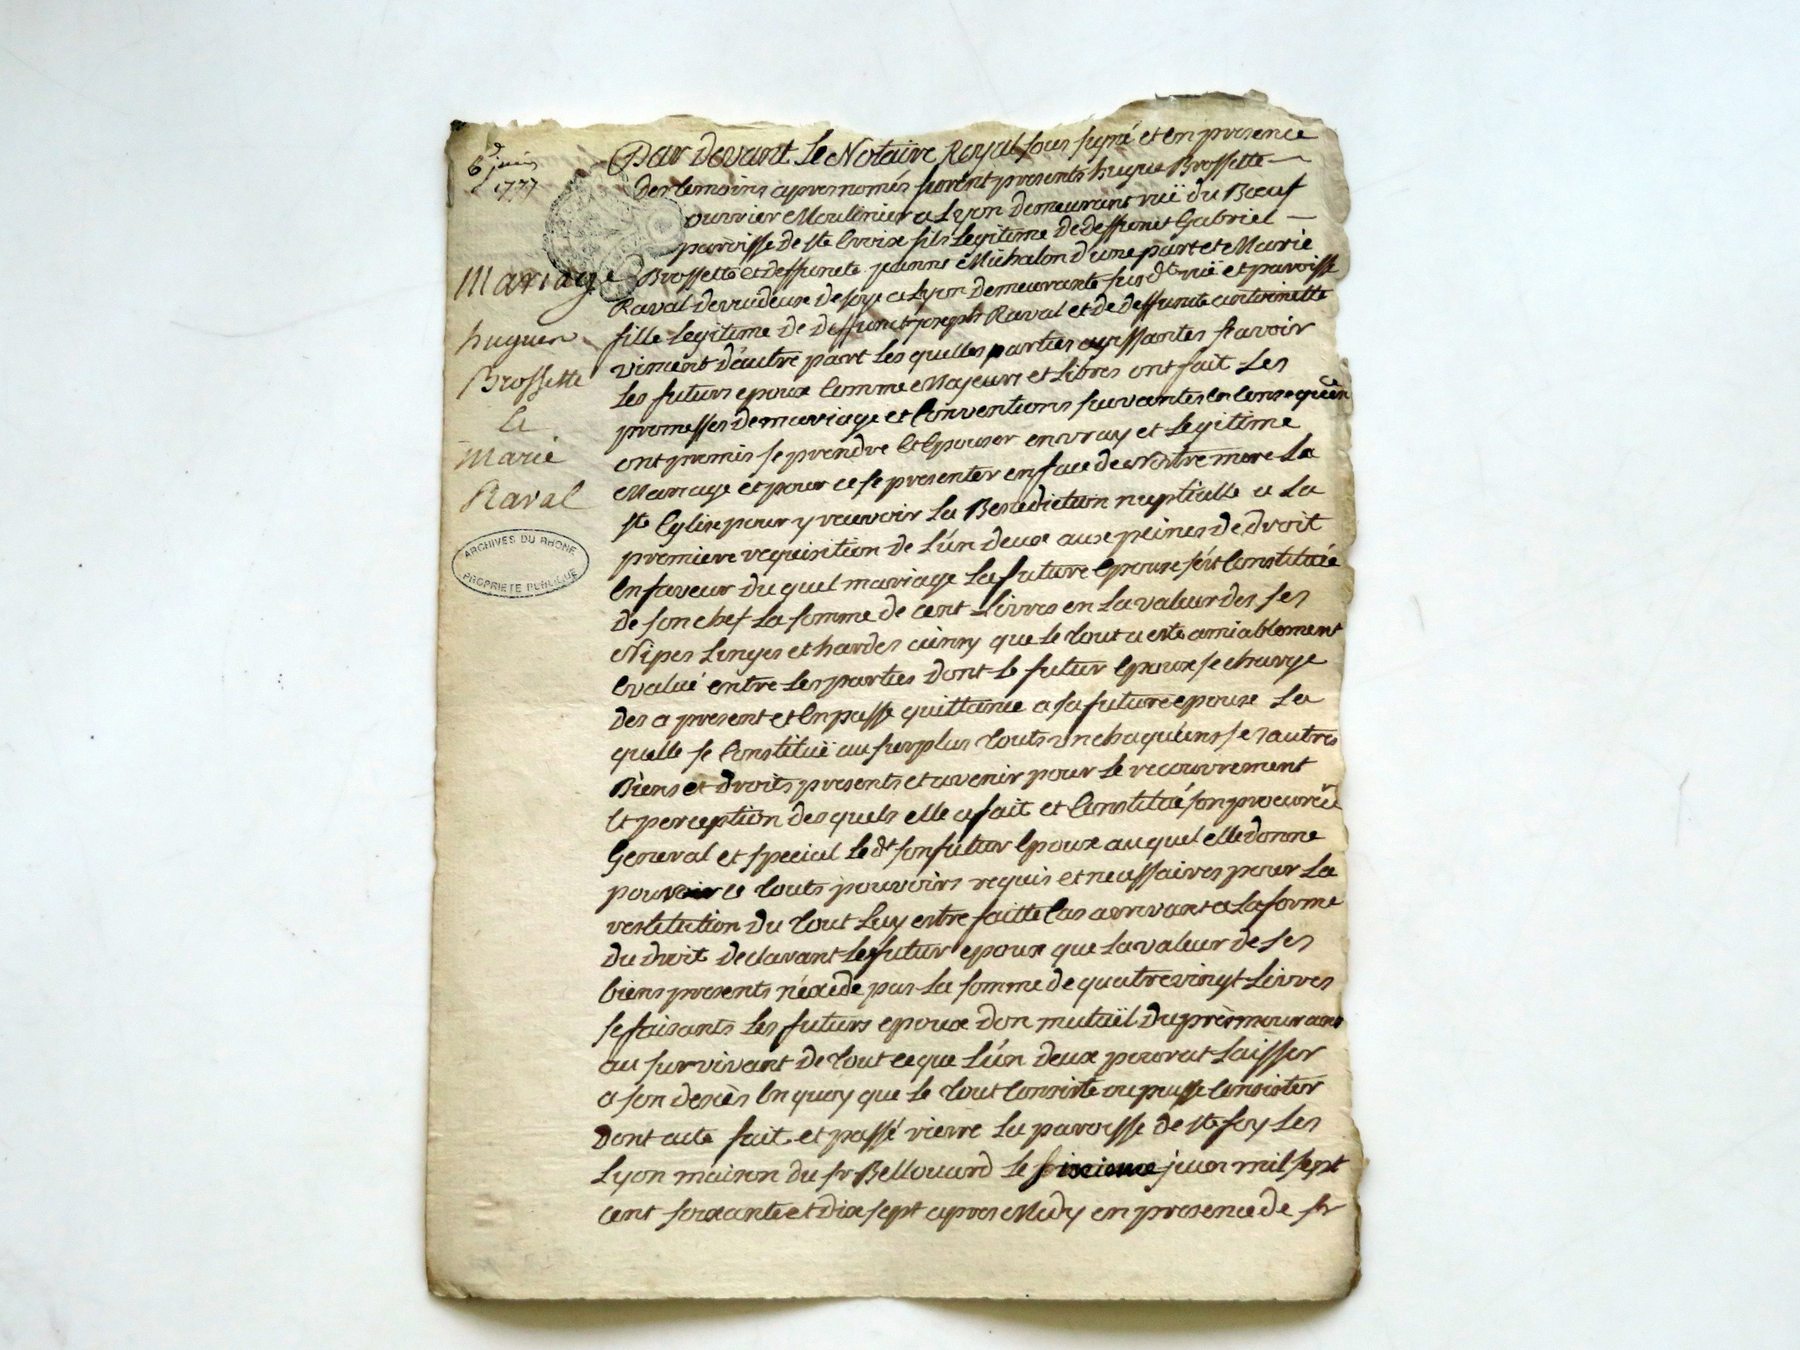 6 juin
1777
Mariage
hugues
Brossette
&
Marie
Raval
ARCHIVES DU RHONE
PROPRIETE PUBLIQUE
Par devant Le Notaire Royal sous signé et en presence
des temoins apres només furent presents hugue Brossette
ouvrier Moulinier a Lyon demeurant ruë du Bœuf
paroisse de Ste Croix fils Legitime de deffunct Gabriel
Brossette et deffuncte jeanne Michalon d'une part et Marie
Raval devideuse de soye a Lyon demeurante susdte ruë et paroisse
fille Legitime de deffunct joseph Raval et de deffuncte antoinette
vincent d'autre part Les quelles parties agissantes sçavoir
Les futurs epoux Comme Majeurs et Libres ont fait Les
promesses de mariage et Conventions suivantes En Consequence
ont promis se prendre Et Epouser en vray et Legitime
Mariage et pour ce se presenter en face de Notre mere La
ste Eglise pour y recevoir La Benediction nuptialle a La
premiere requisition de L'un deux aux peines de droit
En faveur du quel mariage La future Epouse s'est Constituée
de son chef La somme de cent Livres en La valeur des ses
Nipes Linges et hardes ainsy que Le tout a esté amiablement
Evalué entre Les parties dont Le futur Epoux se charge
des a present et En passe quittance a sa future epouse La
quelle se Constituë au surplus touts un chaquuns ses autres
Biens et droits presents et avenir pour Le recouvrement
Et perception desquels elle a fait et Constitué son procureur
General et special Ledt son futur Epoux au quel elle donne
pouvoir touts pouvoirs requis et necessaires pour La
restitution du tout Luy estre faitte Cas arrivant a La forme
du droit declarant Le futur epoux que La valeur de ses
biens presents n'éxede pas La somme de quatre vingt Livres
se faisants Les futurs epoux don mutuël du prèmourant
au survivant de tout ce que L'un deux pourrat Laisser
a son decès En quoy que Le tout Consiste ou puisse Consister
dont acte fait et passé rierre La paroisse de ste foy Les
Lyon maison du sr Bellouard Le sixieme juin mil sept
cent soixante et dix sept apres Midy en presence de sr